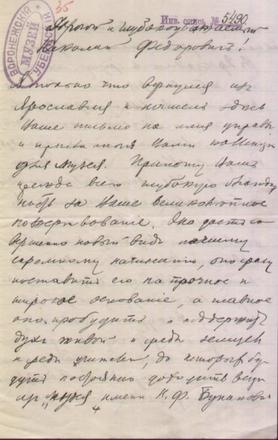 55
Инв. опись № 5490
ВОРОНЕЖСКИЙ МУЗЕЙ
Дорогой и глубокоуважаемый
Николай Федорович!
только что вернулся из
Ярославля и нашел здесь
Ваше письмо на имя управы
и Вами
для Музея. Приношу Вам
прежде всего глубокую благодар
ность за Ваше великодушное
пожертвование. Оно даст со
вершенно новый вид нашему
скромному начинанию, оно сразу
поставит его на прочное и
широкое основание, а главное
оно пробудит и поддержит
дух живой и среди земцев
и среди учителей, до которых бу
дут доходить вещи
из музея имени Н. Ф. Бунакова